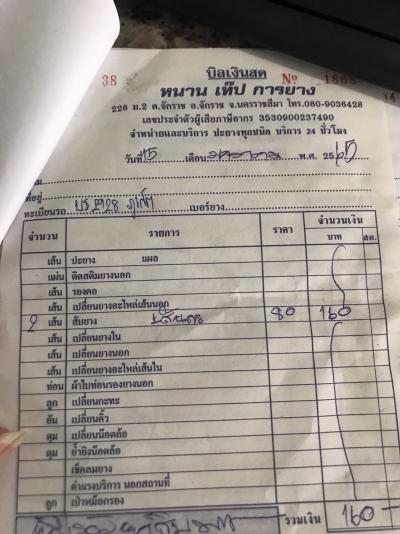 38 บิลเงินสด No 1868
หนาน เท๊ป การยาง
226 ม.2 ต.จักราช อ.จักราช จ.นครราชสีมา โทร.080-9036428
เลขประจำตัวผู้เสียภาษีอากร 3530900237490
จำหน่ายและบริการ ปะยางทุกชนิด บริการ 24 ชั่วโมง
วันที่ 15 เดือน พ.ศ. 25
ที่อยู่
ทะเบียนรถ เบอร์ยาง
จำนวน รายการ ราคา จำนวนเงิน
บาท สต.
เส้น ปะยาง แผล
แผ่น ติดสติมยางนอก
เส้น รองคอ
เส้น เปลี่ยนยางอะไหล่เส้นนอก
2 เส้น สับยาง 80 160
เส้น เปลี่ยนยางใน
เส้น เปลี่ยนยางนอก
เส้น เปลี่ยนยางอะไหล่เส้นใน
ท่อน ผ้าใบท่อนรองยางนอก
ลูก เปลี่ยนกะทะ
อัน เปลี่ยนคิ้ว
ดุม เปลี่ยนน๊อตล้อ
ดุม ย้ำยิงน๊อตล้อ
เช็คลมยาง
ค่าแรงบริการ นอกสถานที่
ลูก เป่าหม้อกรอง
รวมเงิน 160 -